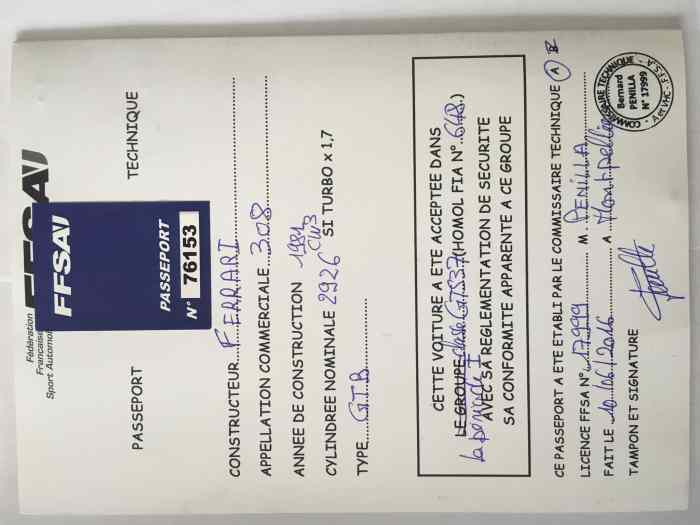 FFSA
Fédération
Française
Sport Automobile
FFSA
PASSEPORT
N° 76153
PASSEPORT TECHNIQUE
CONSTRUCTEUR FERRARI
APPELLATION COMMERCIALE 308
ANNEE DE CONSTRUCTION 1981
CYLINDREE NOMINALE 2926 cm3 SI TURBO x 1,7
TYPE GTB
CETTE VOITURE A ETE ACCEPTEE DANS
LE GROUPE classe GTS37 (HOMOL FIA N° 648.)
la période I
AVEC SA REGLEMENTATION DE SECURITE
SA CONFORMITE APPARENTE A CE GROUPE
CE PASSEPORT A ETE ETABLI PAR LE COMMISSAIRE TECHNIQUE A B
LICENCE FFSA N° 17999 M. PENILLA
FAIT LE 10/06/2016 A Montpellier
TAMPON ET SIGNATURE
COMMISSAIRE TECHNIQUE
Bernard
PENILLA
N° 17999
A et VHC - F.F.S.A.